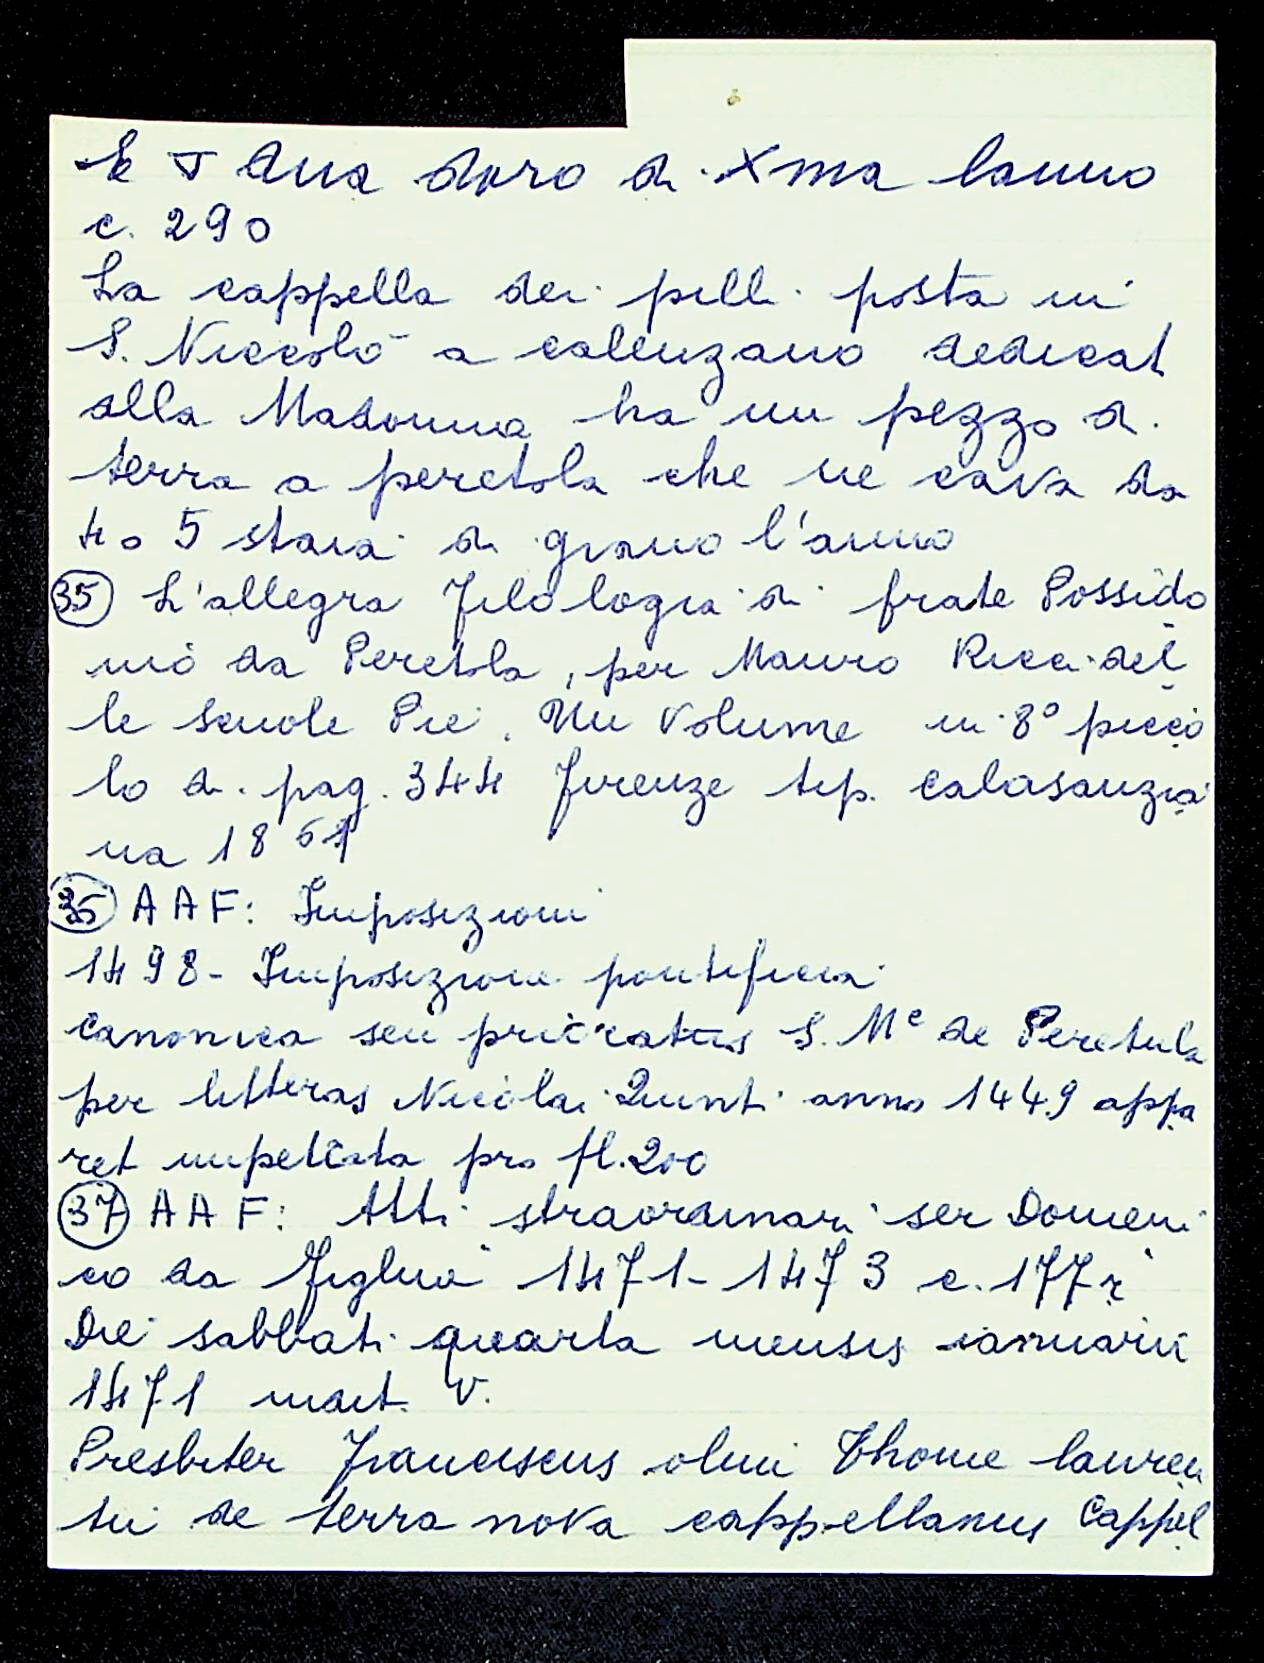 doro di Xma lanno
c. 290
La cappella dei pilli posta in
S. Niccolò a calenzano dedicat
alla Madonna ha un pezzo di
terra a peretola che ne cava da
4 o 5 staia di grano l'anno
35 L'allegra filologia di frate Possido
nio da Peretola, per Mauro Ricci del
le scuole Pie. Un volume in 8° picco
lo di pag. 344 Firenze tip. Calasanzia
na 1861
36 AAF: Imposizioni
1498 - Imposizione pontificia
canonica seu prioratus S. Me de Peretula
per litteras Nicolai Quinti anno 1449 appa
ret pro fl. 200
37 AAF: Atti straordinari ser Domeni
co da Figline 1471-1473 c. 177r
Die sabbati quarta mensis ianuarii
1471
Presbiter Franciscus olim Thome lauren
tii de terra nova cappellanus Cappel